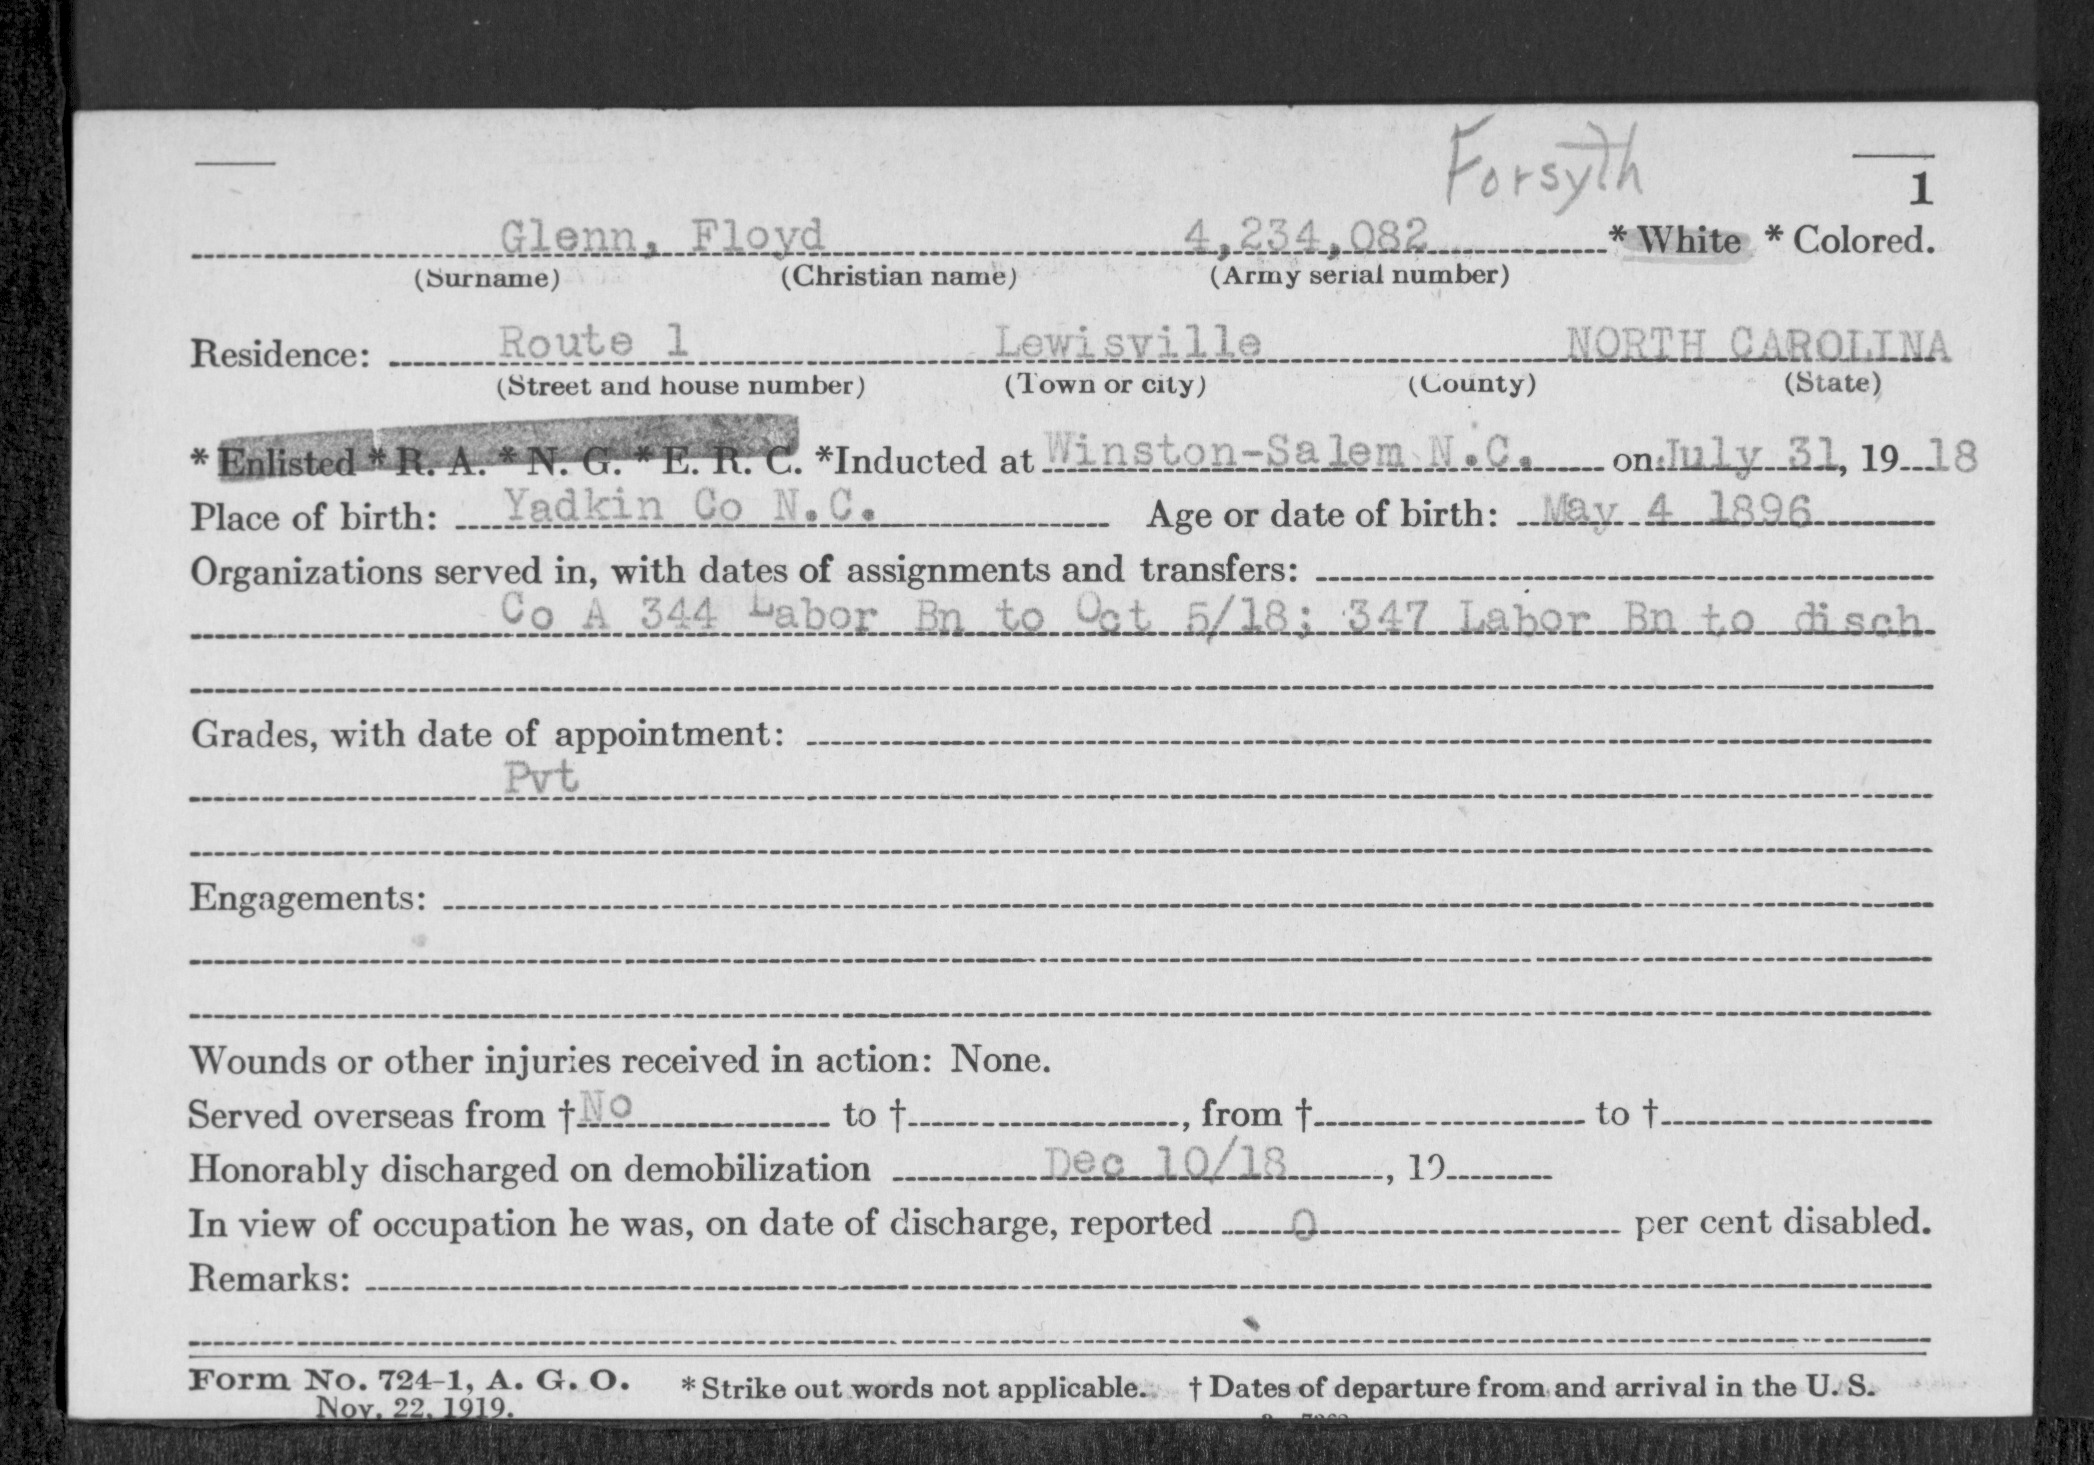 Forsyth
1
Glenn, Floyd 4,234,082 * White * Colored.
(Surname) (Christian name) (Army serial number)
Residence: Route 1 Lewisville NORTH CAROLINA
(Street and house number) (Town or city) (County) (State)
* Enlisted * R. A. * N. G. * E. R. C. *Inducted at Winston-Salem N.C. on July 31, 19 18
Place of birth: Yadkin Co N.C. Age or date of birth: May 4 1896
Organizations served in, with dates of assignments and transfers:
Co A 344 Labor Bn to Oct 5/18; 347 Labor Bn to disch
Grades, with date of appointment:
Pvt
Engagements:
Wounds or other injuries received in action: None.
Served overseas from † No to †, from † to †
Honorably discharged on demobilization Dec 10/18, 19
In view of occupation he was, on date of discharge, reported 0 per cent disabled.
Remarks:
Form No. 724-1, A. G. O. * Strike out words not applicable. † Dates of departure from and arrival in the U. S.
Nov. 22, 1919.